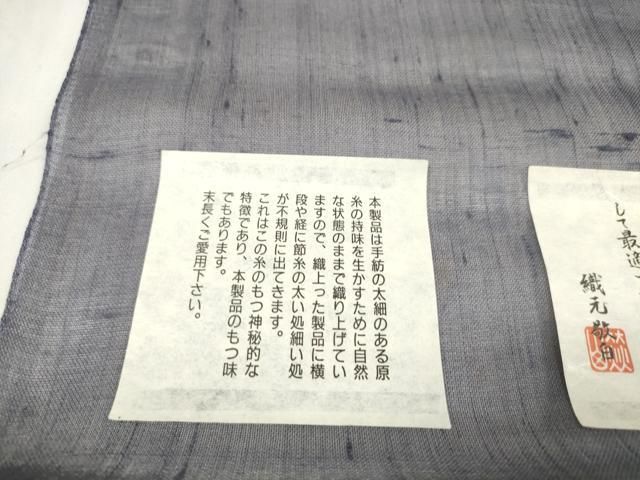 本製品は手紡の太細のある原
糸の持味を生かすために自然
な状態のままで織り上げてい
ますので、織上った製品に横
段や経に節糸の太い処細い処
が不規則に出てきます。
これはこの糸のもつ神秘的な
特徴であり、本製品のもつ味
でもあります。
末長くご愛用下さい。
して最適
織元敬白